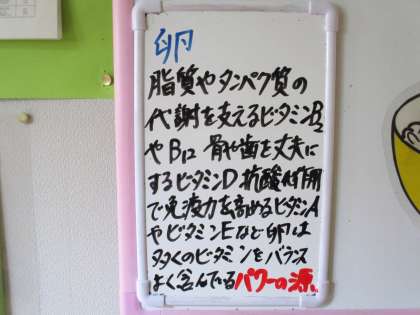 卵
脂質やタンパク質の
代謝を支えるビタミンB2
やB12 骨や歯を丈夫に
するビタミンD 抗酸化作用
で免疫力を高めるビタミンA
やビタミンEなど卵は
多くのビタミンをバランス
よく含んでるパワーの源。